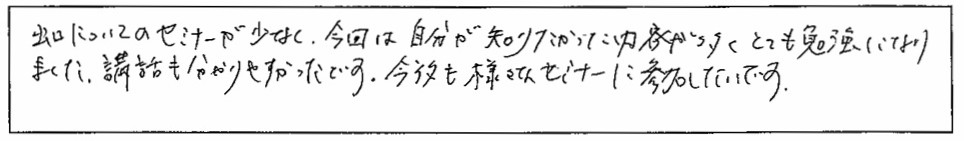 出口についてのセミナーが少なく、今回は自分が知りたかった内容が多くとても勉強になり
ました。講話も分かりやすかったです。今後も様々なセミナーに参加したいです。